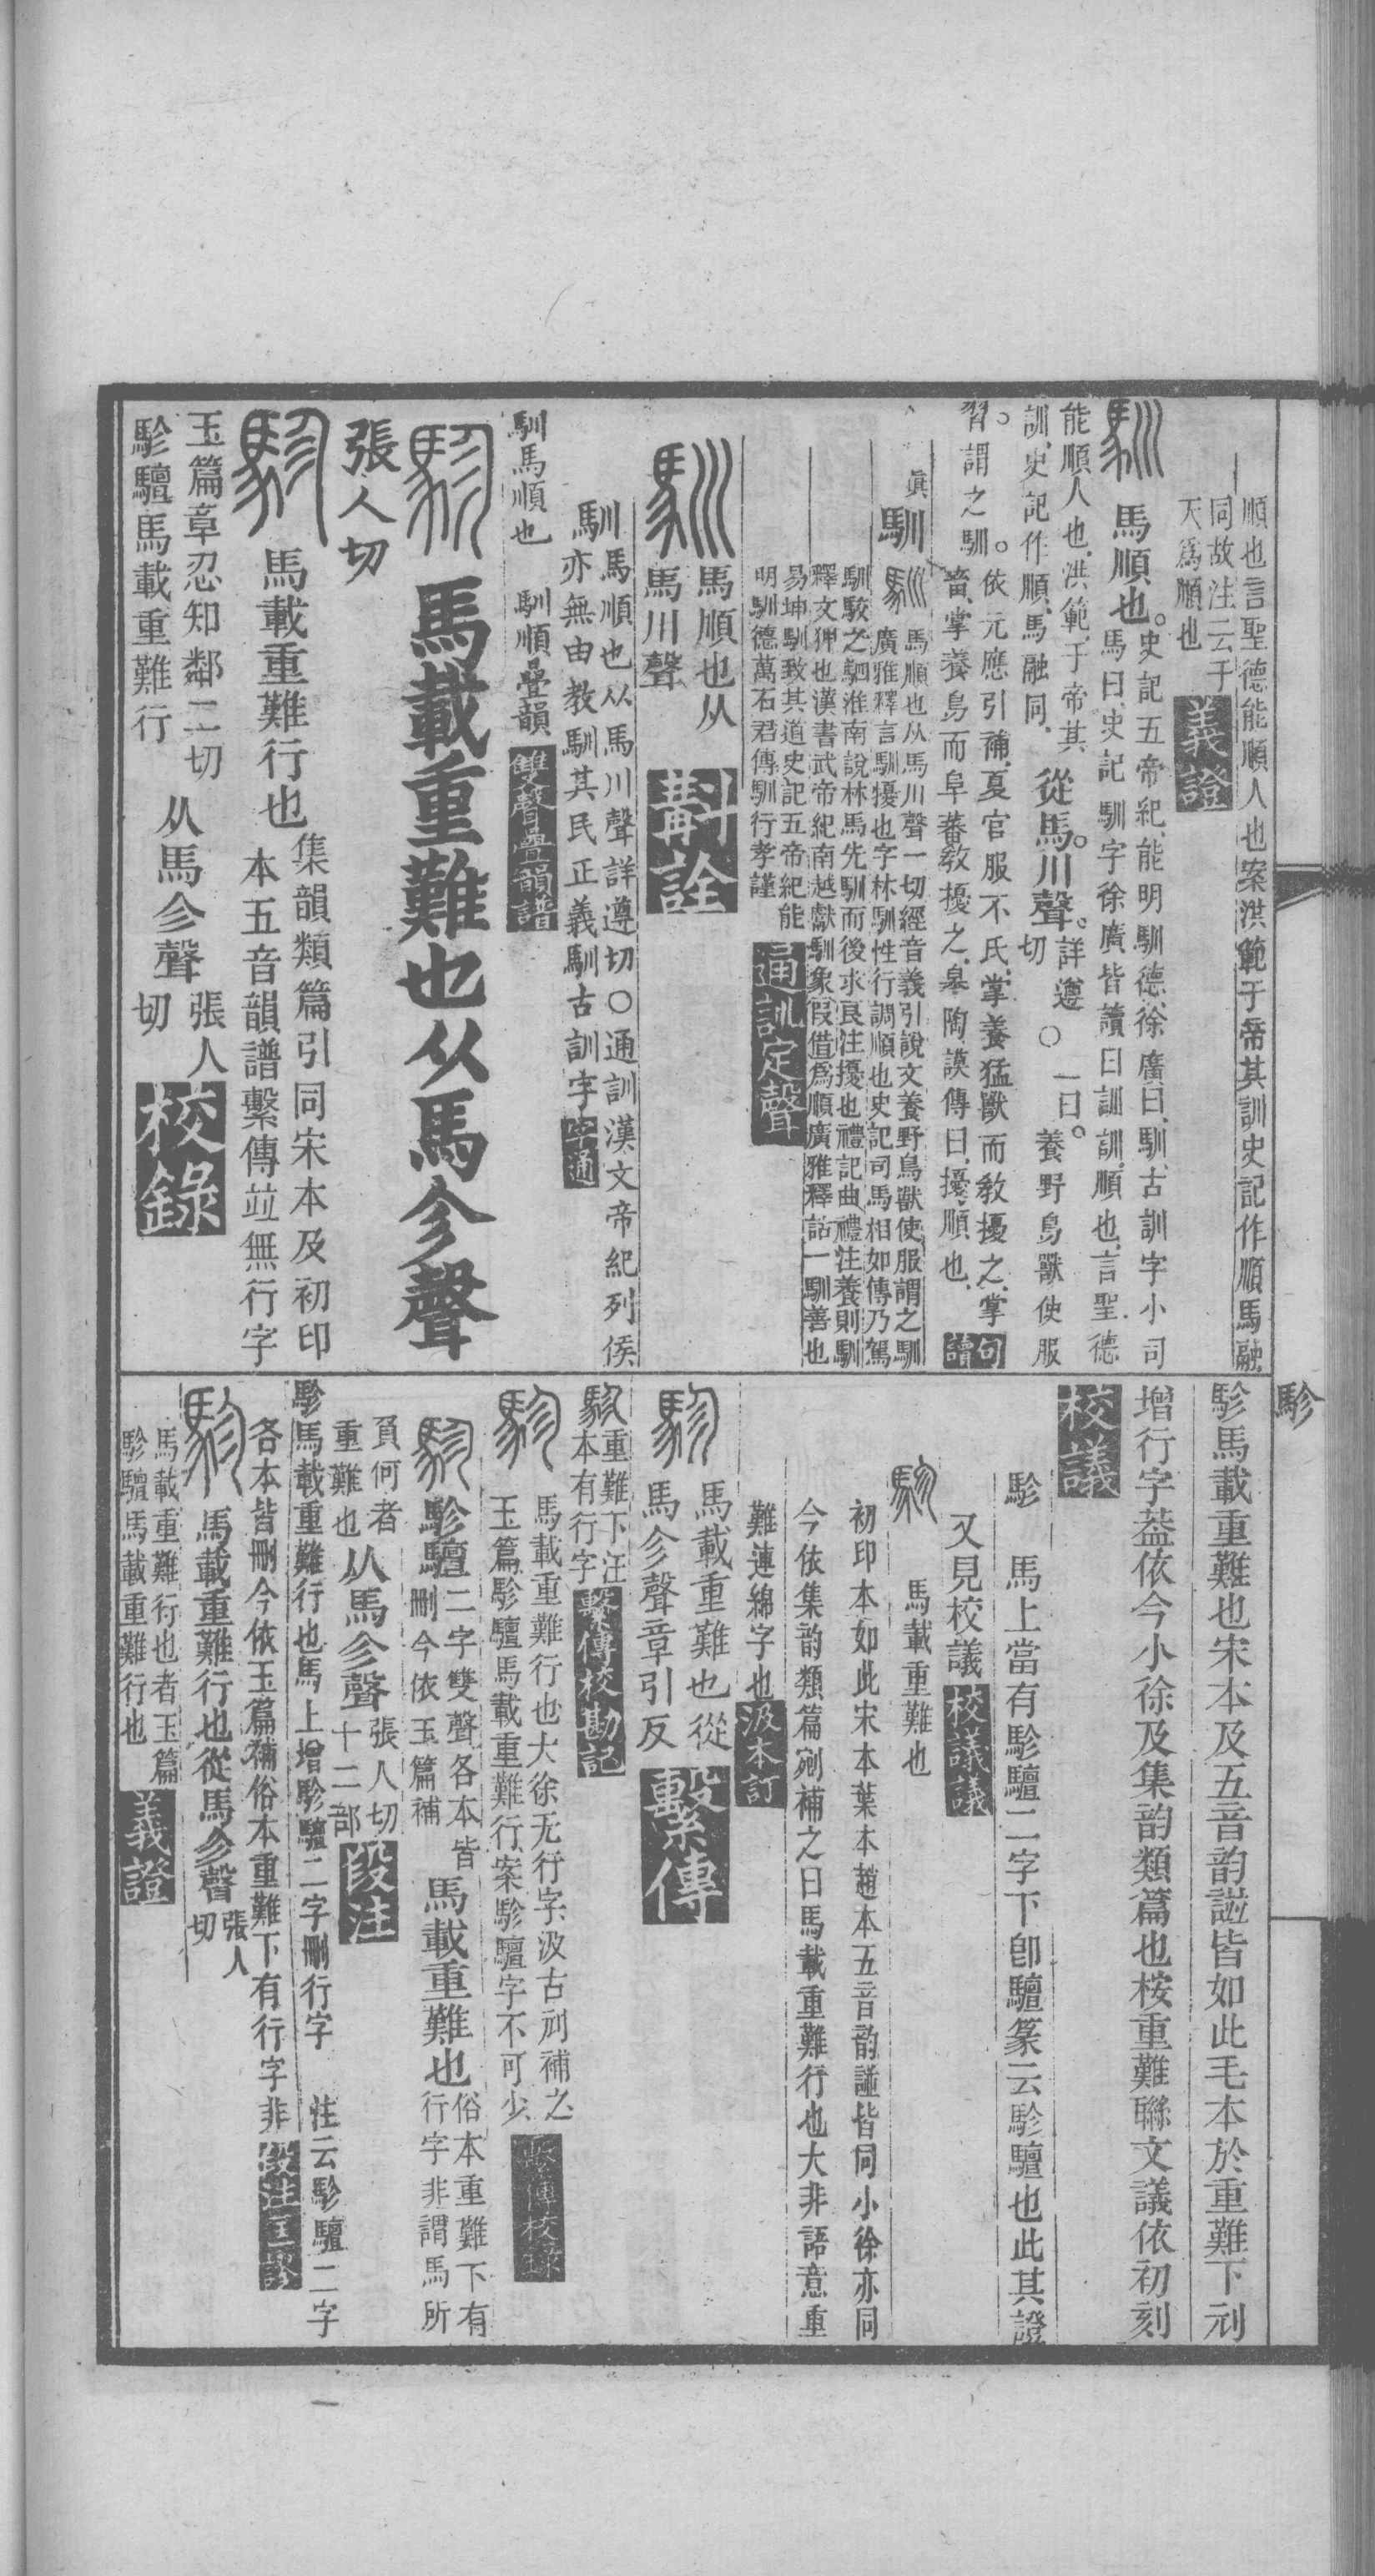 順也言聖德能順人也案洪範于帝其訓史記作順馬融
同故注云于
天爲順也
義證
馬順也。
史記五帝紀能明馴德徐廣曰馴古訓字小司
馬曰史記馴字徐廣皆讀曰訓訓順也言聖德
能順人也洪範于帝其
訓史記作順馬融同
從馬。川聲。
詳遵
切
○一曰。養野鳥獸使服
。謂之馴。
依元應引補夏官服不氏掌養猛獸而教擾之掌
畜掌養鳥而阜蕃教擾之皋陶謨傳曰擾順也
句讀
馴
馬順也从馬川聲一切經音義引說文養野鳥獸使服謂之馴
廣雅釋言馴擾也字林馴性行調順也史記司馬相如傳乃駕
馴駮之駟淮南說林馬先馴而後求良注擾也禮記曲禮注養則馴
釋文狎也漢書武帝紀南越獻馴象假借爲順廣雅釋詁一馴善也
易坤馴致其道史記五帝紀能
明馴德萬石君傳馴行孝謹
通訓定聲
馬順也从
馬川聲
斠詮
馴馬順也从馬川聲詳遵切○通訓漢文帝紀列侯
馴亦無由教馴其民正義馴古訓字
字通
馴馬順也
馴順疊韻
雙聲疊韻譜
馬載重難也从馬㐱聲
張人切
馬載重難行也
集韻類篇引同宋本及初印
本五音韻譜繫傳竝無行字
玉篇章忍知鄰二切
駗驙馬載重難行
从馬㐱聲
張人
切
校錄
駗
駗馬載重難也宋本及五音韵譜皆如此毛本於重難下刓
增行字葢依今小徐及集韵類篇也桉重難聯文議依初刻
校議
駗
馬上當有駗驙二字下卽驙篆云駗驙也此其證
又見校議
校議議
馬載重難也
初印本如此宋本葉本趙本五音韵譜皆同小徐亦同
今依集韵類篇剜補之曰馬載重難行也大非語意重
難連綿字也
汲本訂
馬載重難也從
馬㐱聲章引反
繫傳
重難下汪
本有行字
繫傳校勘記
馬載重難行也大徐无行字汲古刓補之
玉篇駗驙馬載重難行案駗驙字不可少
繫傳校錄
駗驙
二字雙聲各本皆
刪今依玉篇補
馬載重難也
俗本重難下有
行字非謂馬所
負何者
重難也
从馬㐱聲
張人切
十二部
段注
駗馬載重難行也馬上增駗驙二字刪行字
注云駗驙二字
各本皆刪今依玉篇補俗本重難下有行字非
段注匡謬
馬載重難行也從馬㐱聲
張人
切
馬載重難行也者玉篇
駗驙馬載重難行也
義證